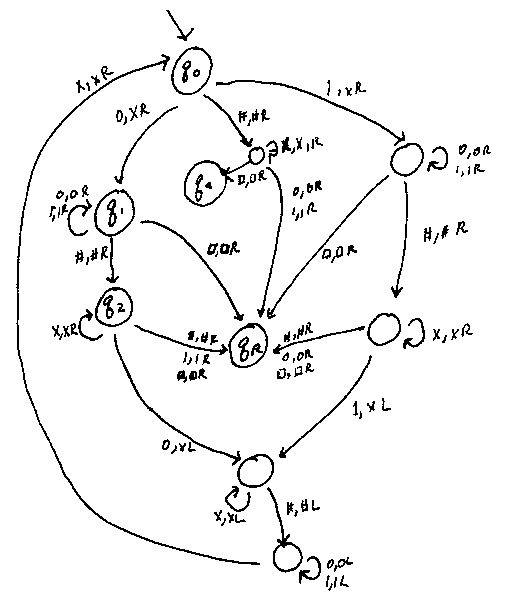 q0
x,xR
0,xR
#,#R
1,xR
x,x,1R
□,□R
qa
0,0R
1,1R
0,0R
1,1R
0,0R
1,1R
q1
#,#R
□,□R
□,□R
#,#R
q2
x,xR
#,#R
1,1R
□,□R
qR
#,#R
0,0R
□,□R
x,xR
0,xL
1,xL
x,xL
#,#L
0,0L
1,1L